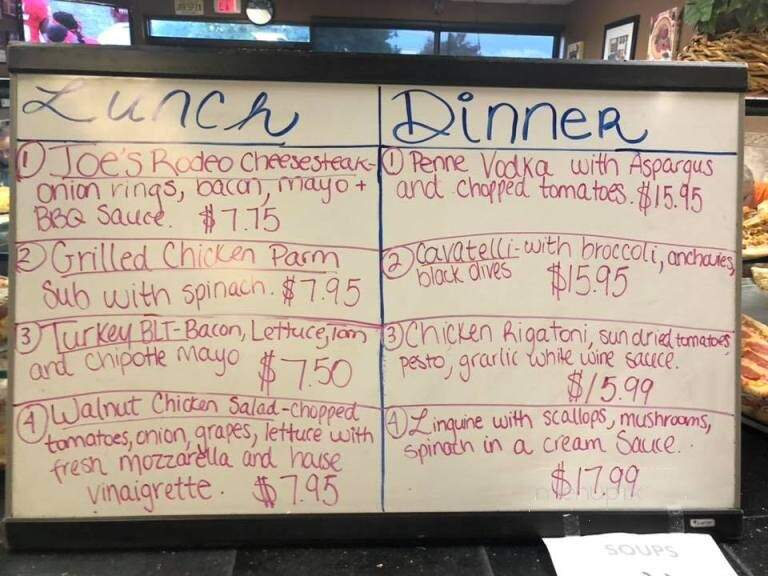 Lunch
1 Joe's Rodeo Cheesesteak-
onion rings, bacon, mayo +
BBQ Sauce. $7.75
2 Grilled Chicken Parm
Sub with spinach. $7.95
3 Turkey BLT-Bacon, Lettuce, Tom
and chipotle mayo $7.50
4 Walnut Chicken Salad-chopped
tomatoes, onion, grapes, lettuce with
fresh mozzarella and house
vinaigrette. $7.95
Dinner
1 Penne Vodka with Aspargus
and chopped tomatoes. $15.95
2 Cavatelli-with broccoli, anchovies,
black olives $15.95
3 Chicken Rigatoni, sundried tomatoes
pesto, grarlic white wine sauce.
$15.99
4 Linguine with scallops, mushrooms,
spinach in a cream Sauce.
$17.99
menupix
SOUPS